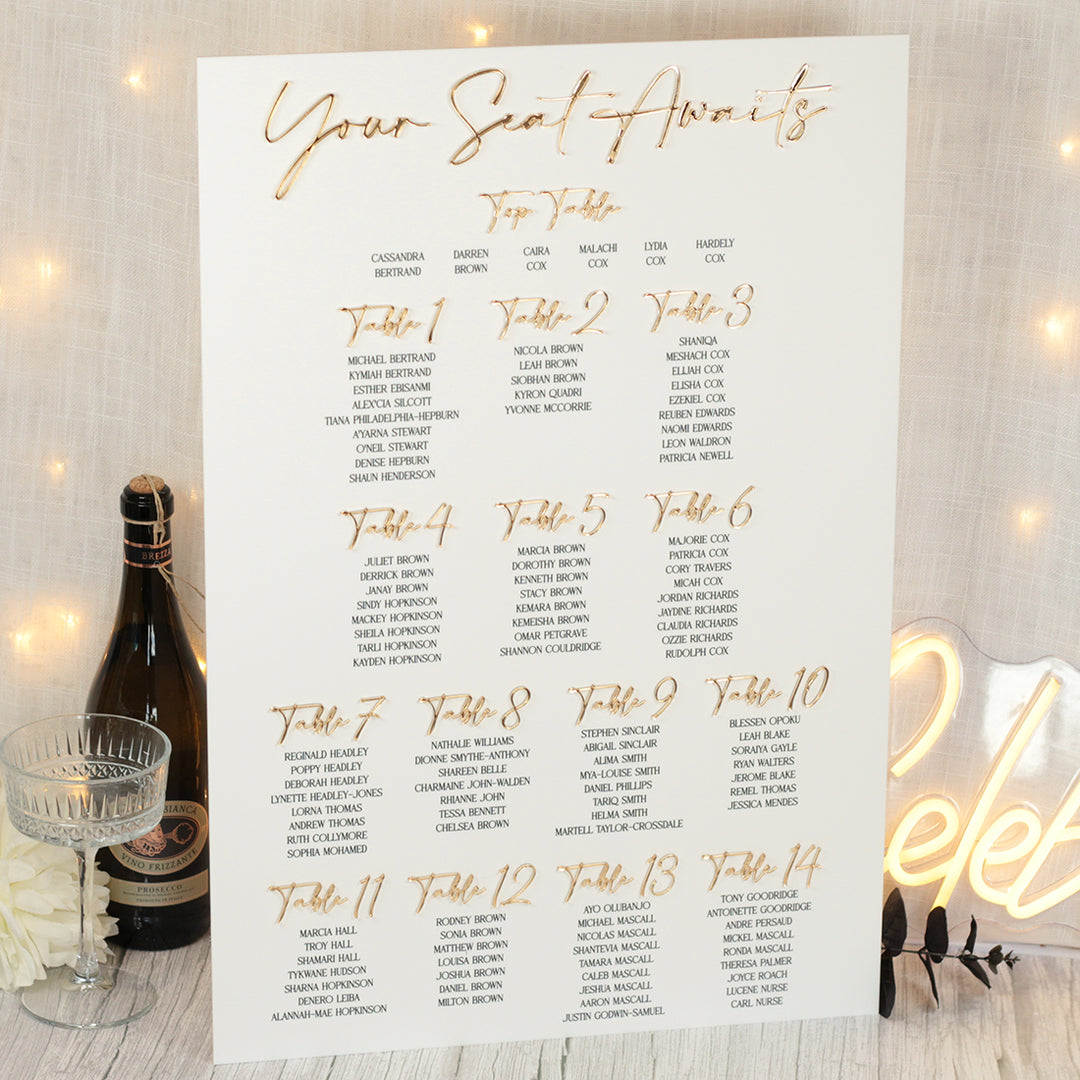 Your Seat Awaits
Top Table
CASSANDRA DARREN CAIRA MALACHI LYDIA HARDELY
BERTRAND BROWN COX COX COX COX
Table 1
MICHAEL BERTRAND
KYMIAH BERTRAND
ESTHER EBISANMI
ALEX'CIA SILCOTT
TIANA PHILADELPHIA-HEPBURN
A'YARNA STEWART
O'NEIL STEWART
DENISE HEPBURN
SHAUN HENDERSON
Table 2
NICOLA BROWN
LEAH BROWN
SIOBHAN BROWN
KYRON QUADRI
YVONNE MCCORRIE
Table 3
SHANIQA
MESHACH COX
ELIJAH COX
ELISHA COX
EZEKIEL COX
REUBEN EDWARDS
NAOMI EDWARDS
LEON WALDRON
PATRICIA NEWELL
Table 4
JULIET BROWN
DERRICK BROWN
JANAY BROWN
SINDY HOPKINSON
MACKEY HOPKINSON
SHEILA HOPKINSON
TARLI HOPKINSON
KAYDEN HOPKINSON
Table 5
MARCIA BROWN
DOROTHY BROWN
KENNETH BROWN
STACY BROWN
KEMARA BROWN
KEMEISHA BROWN
OMAR PETGRAVE
SHANNON COULDRIDGE
Table 6
MAJORIE COX
PATRICIA COX
CORY TRAVERS
MICAH COX
JORDAN RICHARDS
JAYDINE RICHARDS
CLAUDIA RICHARDS
OZZIE RICHARDS
RUDOLPH COX
Table 7
REGINALD HEADLEY
POPPY HEADLEY
DEBORAH HEADLEY
LYNETTE HEADLEY-JONES
LORNA THOMAS
ANDREW THOMAS
RUTH COLLYMORE
SOPHIA MOHAMED
Table 8
NATHALIE WILLIAMS
DIONNE SMYTHE-ANTHONY
SHAREEN BELLE
CHARMAINE JOHN-WALDEN
RHIANNE JOHN
TESSA BENNETT
CHELSEA BROWN
Table 9
STEPHEN SINCLAIR
ABIGAIL SINCLAIR
ALIMA SMITH
MYA-LOUISE SMITH
DANIEL PHILLIPS
TARIQ SMITH
HELMA SMITH
MARTELL TAYLOR-CROSSDALE
Table 10
BLESSEN OPOKU
LEAH BLAKE
SORAIYA GAYLE
RYAN WALTERS
JEROME BLAKE
REMEL THOMAS
JESSICA MENDES
Table 11
MARCIA HALL
TROY HALL
SHAMARI HALL
TYKWANE HUDSON
SHARNA HOPKINSON
DENERO LEIBA
ALANNAH-MAE HOPKINSON
Table 12
RODNEY BROWN
SONIA BROWN
MATTHEW BROWN
LOUISA BROWN
JOSHUA BROWN
DANIEL BROWN
MILTON BROWN
Table 13
AYO OLUBANJO
MICHAEL MASCALL
NICOLAS MASCALL
SHANTEVIA MASCALL
TAMARA MASCALL
CALEB MASCALL
JESHUA MASCALL
AARON MASCALL
JUSTIN GODWIN-SAMUEL
Table 14
TONY GOODRIDGE
ANTOINETTE GOODRIDGE
ANDRE PERSAUD
MICKEL MASCALL
RONDA MASCALL
THERESA PALMER
JOYCE ROACH
LUCENE NURSE
CARL NURSE
BREZZA
BIANCA
VINO FRIZZANTE
PROSECCO